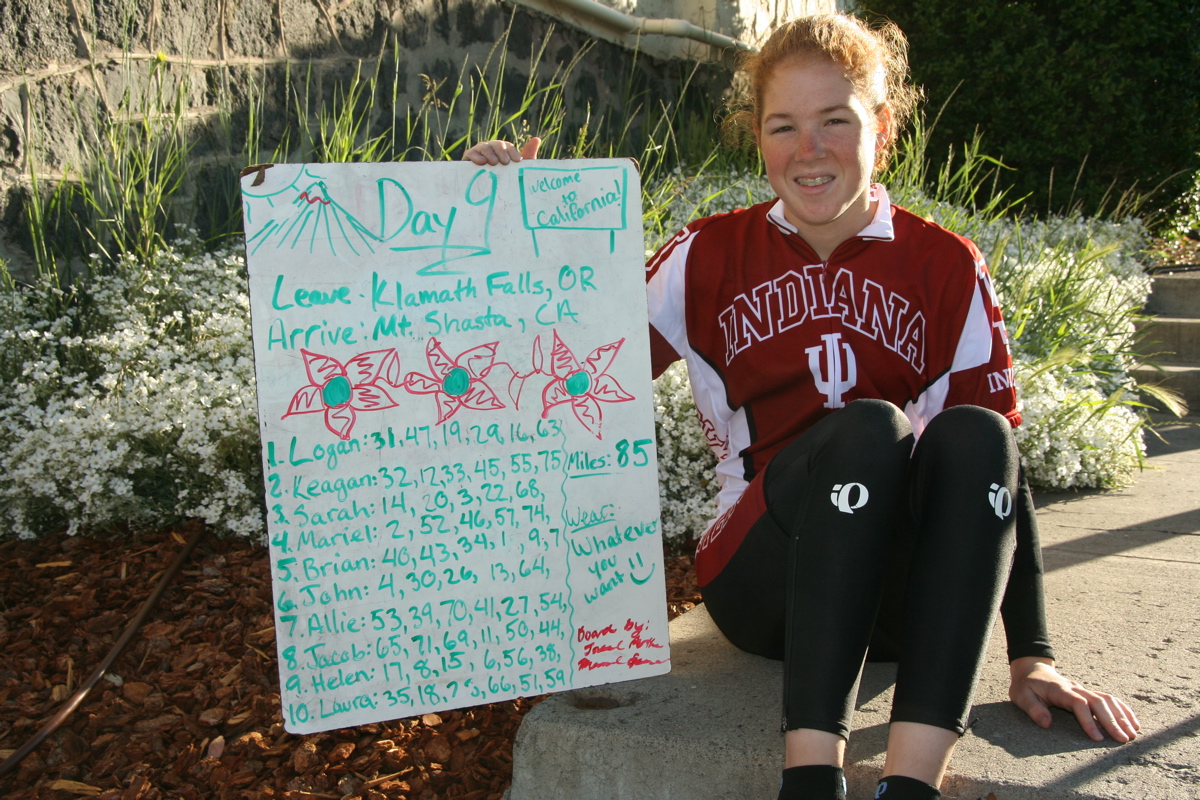 Day 9
Welcome
to
California!
Leave: Klamath Falls, OR
Arrive: Mt. Shasta, CA
1. Logan: 31, 47, 19, 29, 16, 63
2. Keagan: 32, 12, 33, 45, 55, 75
3. Sarah: 14, 20, 3, 22, 68,
4. Mariel: 2, 52, 46, 57, 74,
5. Brian: 40, 43, 34, 1, 9, 7
6. John: 4, 30, 26, 13, 64,
7. Allie: 53, 39, 70, 41, 27, 54,
8. Jacob: 65, 71, 69, 11, 50, 44,
9. Helen: 17, 8, 15, 6, 56, 38,
10. Laura: 35, 18, 66, 51, 59
Miles: 85
Wear:
Whatever
you
want
Board by:
INDIANA
IU
IN
iQ
iQ